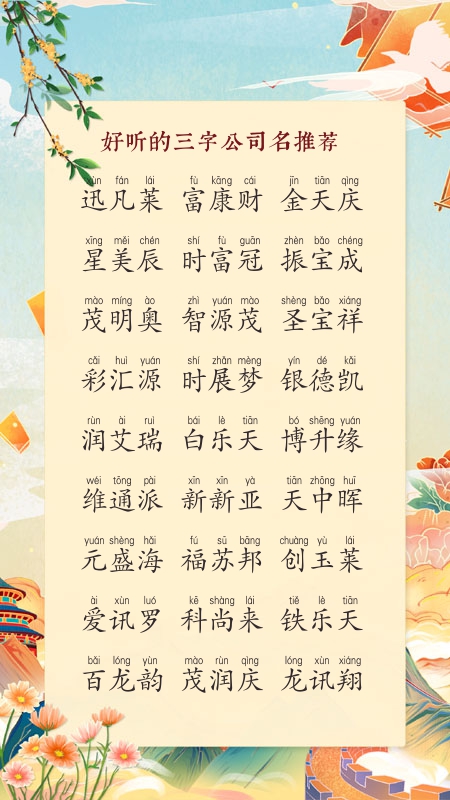 好听的三字公司名推荐
xùn fán lái fù kāng cái jīn tiān qìng
迅凡莱 富康财 金天庆
xīng měi chén shí fù guān zhèn bǎo chéng
星美辰 时富冠 振宝成
mào míng ào zhì yuán mào shèng bǎo xiáng
茂明奥 智源茂 圣宝祥
cǎi huì yuán shí zhǎn mèng yín dé kǎi
彩汇源 时展梦 银德凯
rùn ài ruì bái lè tiān bó shēng yuán
润艾瑞 白乐天 博升缘
wéi tōng pài xīn xīn yà tiān zhōng huī
维通派 新新亚 天中晖
yuán shèng hǎi fú sū bāng chuàng yù lái
元盛海 福苏邦 创玉莱
ài xùn luó kē shàng lái tiě lè tiān
爱讯罗 科尚来 铁乐天
bǎi lóng yùn mào rùn qìng lóng xùn xiáng
百龙韵 茂润庆 龙讯翔